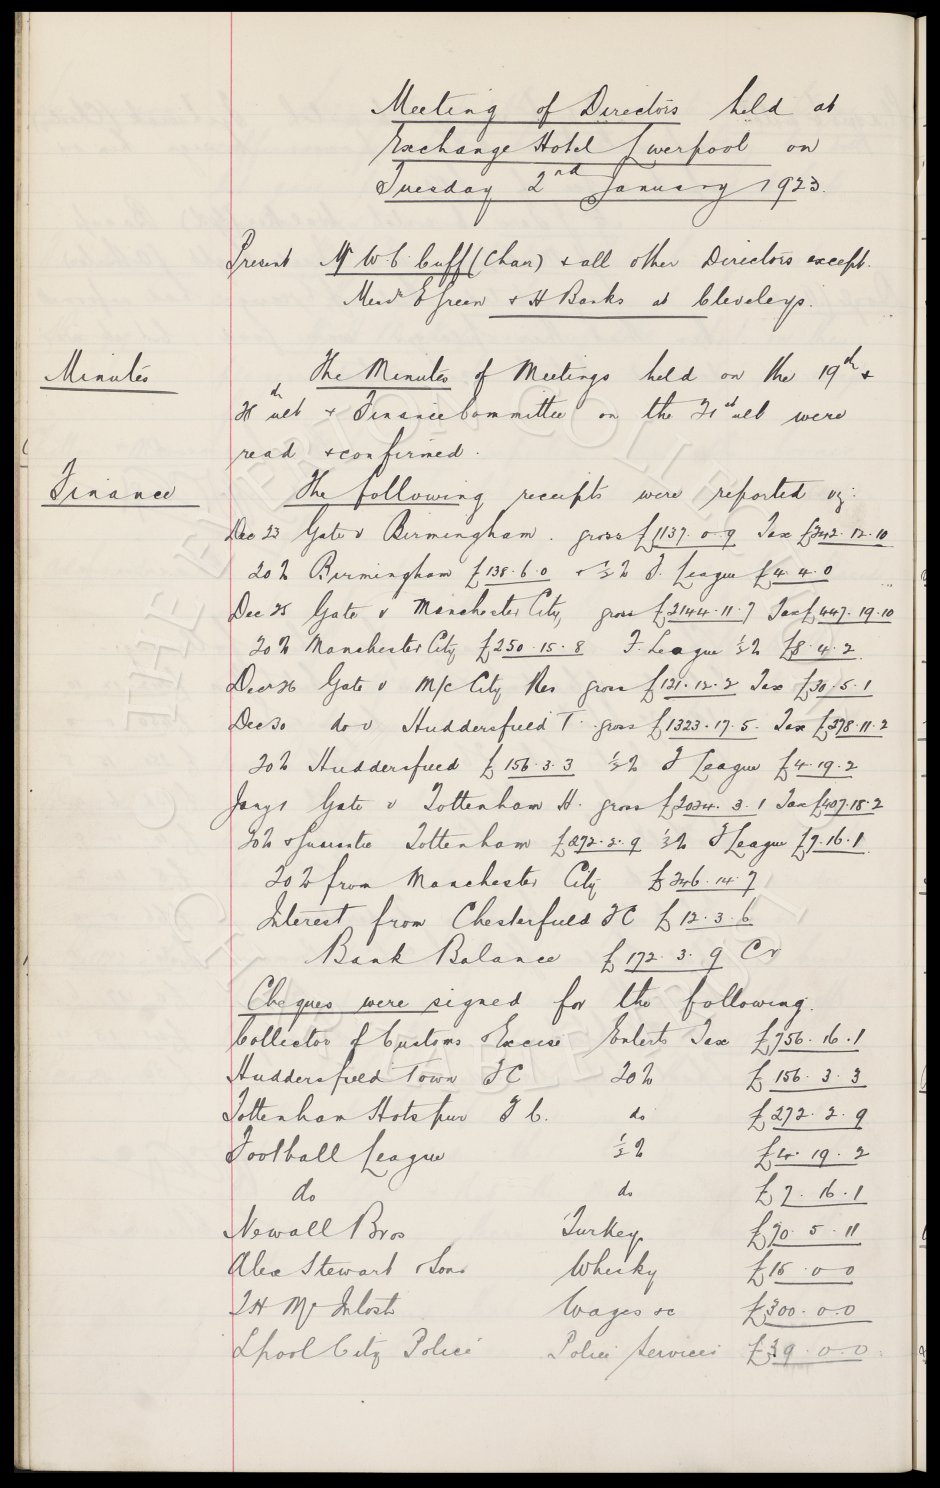 Meeting of Directors held at
Exchange Hotel Liverpool on
Tuesday 2nd January 1923.
Present Mr W.C. Cuff (Chair) + all other Directors except
Messrs E Green + H Banks at Cleveleys.
Minutes
The Minutes of Meetings held on the 19th +
ult + Finance Committee on the ult were
read + confirmed.
Finance
The following receipts were reported viz:
Dec 23 Gate v Birmingham. gross £1137.0.9 Tax £242.12.10
20% Birmingham £138.6.0 + ½% F. League £4.4.0
Dec 25 Gate v Manchester City, gross £2144.11.7 Tax £447.19.10
20% Manchester City £250.15.8 F. League ½% £8.4.2
Dec 26 Gate v M/c City Res gross £121.12.2 Tax £30.5.1
Dec 30 do v Huddersfield T. gross £1323.17.5. Tax £278.11.2
20% Huddersfield £156.3.3 ½% F League £4.19.2
Jany 1 Gate v Tottenham H. gross £2034.3.1 Tax £407.18.2
20% + Guarantee Tottenham £272.2.9 ½% F League £7.16.1
20% from Manchester City £246.14.7
Interest from Chesterfield FC £12.3.6
Bank Balance £172.3.9 Cr
Cheques were signed for the following.
Collector of Customs + Excise Enterts Tax £756.16.1
Huddersfield Town FC 20% £156.3.3
Tottenham Hotspur F C. do £272.2.9
Football League ½% £4.19.2
do do £7.16.1
Newall Bros Turkey £70.5.11
Alex Stewart + Sons Whisky £15.0.0
T H McIntosh Wages &c £300.0.0
Lpool City Police Police Services £39.0.0
THE EVERTON COLLECTION